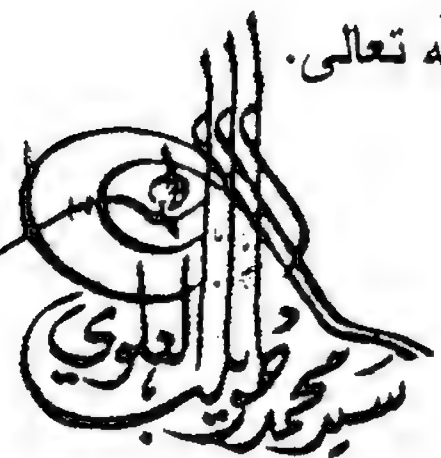 ه تعالى.
سيد محمد طويلب العلوي